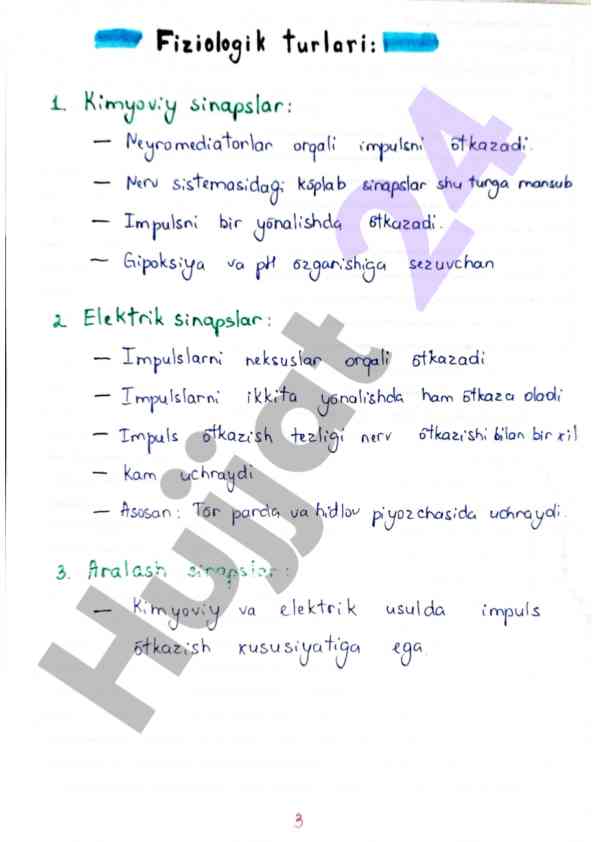 Fiziologik turlari:
1. Kimyoviy sinapslar:
– Neyromediatorlar orqali impulsni õtkazadi.
– Nerv sistemasidagi kõplab sinapslar shu turga mansub
– Impulsni bir yõnalishda õtkazadi.
– Gipoksiya va pH õzgarishiga sezuvchan
2. Elektrik sinapslar:
– Impulslarni neksuslar orqali õtkazadi
– Impulslarni ikkita yõnalishda ham õtkaza oladi
– Impuls õtkazish tezligi nerv õtkazishi bilan bir xil
– Kam uchraydi
– Asosan: Tõr parda va hidlov piyozchasida uchraydi.
3. Aralash sinapslar:
– Kimyoviy va elektrik usulda impuls
õtkazish xususiyatiga ega.
Hujjat 24
3